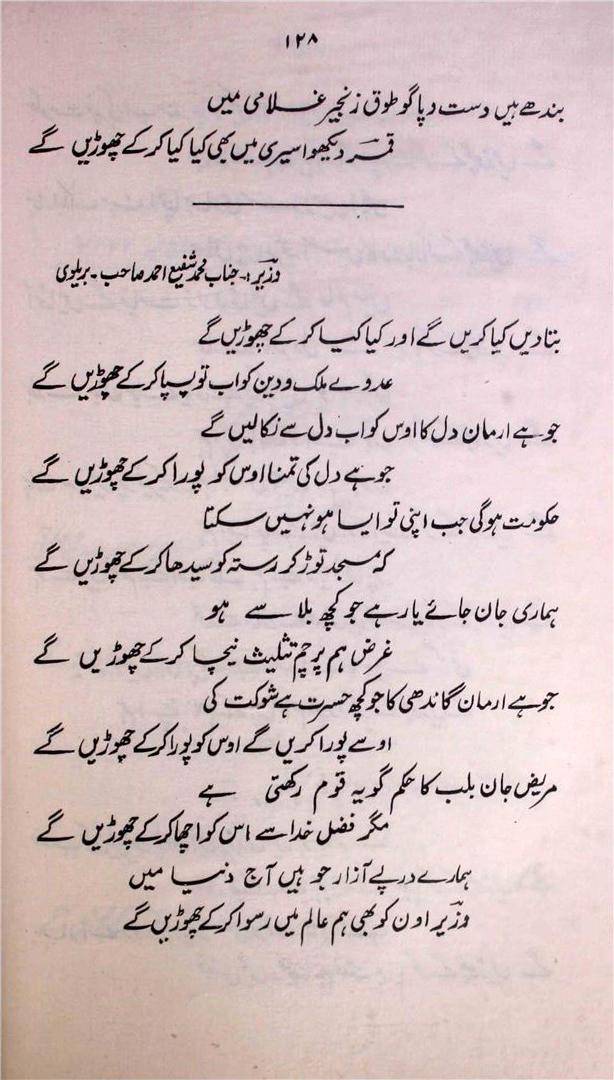 ۱۲۸
بندھے ہیں دست و پا گو طوق زنجیر غلامی میں
قمر دیکھو اسیری میں بھی کیا کیا کر کے چھوڑیں گے
وزیر:۔ جناب محمد شفیع احمد صاحب۔ بریلوی
بتا دیں کیا کریں گے اور کیا کیا کر کے چھوڑیں گے
عدوے ملک و دین کو اب تو پسپا کر کے چھوڑیں گے
جو ہے ارمان دل کا اوس کو اب دل سے نکالیں گے
جو ہے دل کی تمنا اوس کو پورا کر کے چھوڑیں گے
حکومت ہوگی جب اپنی تو ایسا ہو نہیں سکتا
کہ مسجد توڑ کر رستہ کو سیدھا کر کے چھوڑیں گے
ہماری جان جائے یا رہے جو کچھ بلا سے ہو
غرض ہم پرچم تثلیث نیچا کر کے چھوڑیں گے
جو ہے ارمان گاندھی کا جو کچھ حسرت ہے شوکت کی
اوسے پورا کریں گے اوس کو پورا کر کے چھوڑیں گے
مریض جان بلب کا حکم گو یہ قوم رکھتی ہے
مگر فضل خدا سے اس کو اچھا کر کے چھوڑیں گے
ہمارے درپے آزار جو ہیں آج دنیا میں
وزیر اون کو بھی ہم عالم میں رسوا کر کے چھوڑیں گے